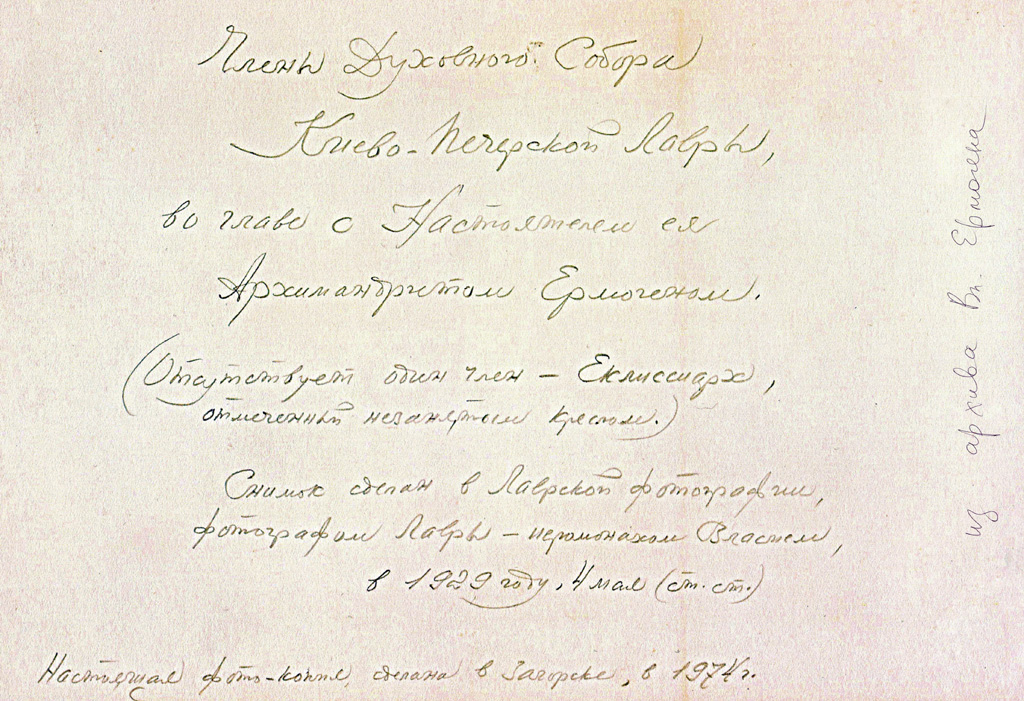 Члены Духовного Собора
Киево-Печерской Лавры,
во главе с Настоятелем ея
Архимандритом Ермогеном.
(Отсутствует один член – Екклисиарх,
отмеченный незанятым креслом.)
Снимок сделан в Лаврской фотографии,
фотографом Лавры – иеромонахом Власием,
в 1929 году, 4 мая (ст. ст.)
Настоящая фото-копия, сделана в Загорске, в 1974 г.
из архива Вл. Ермогена